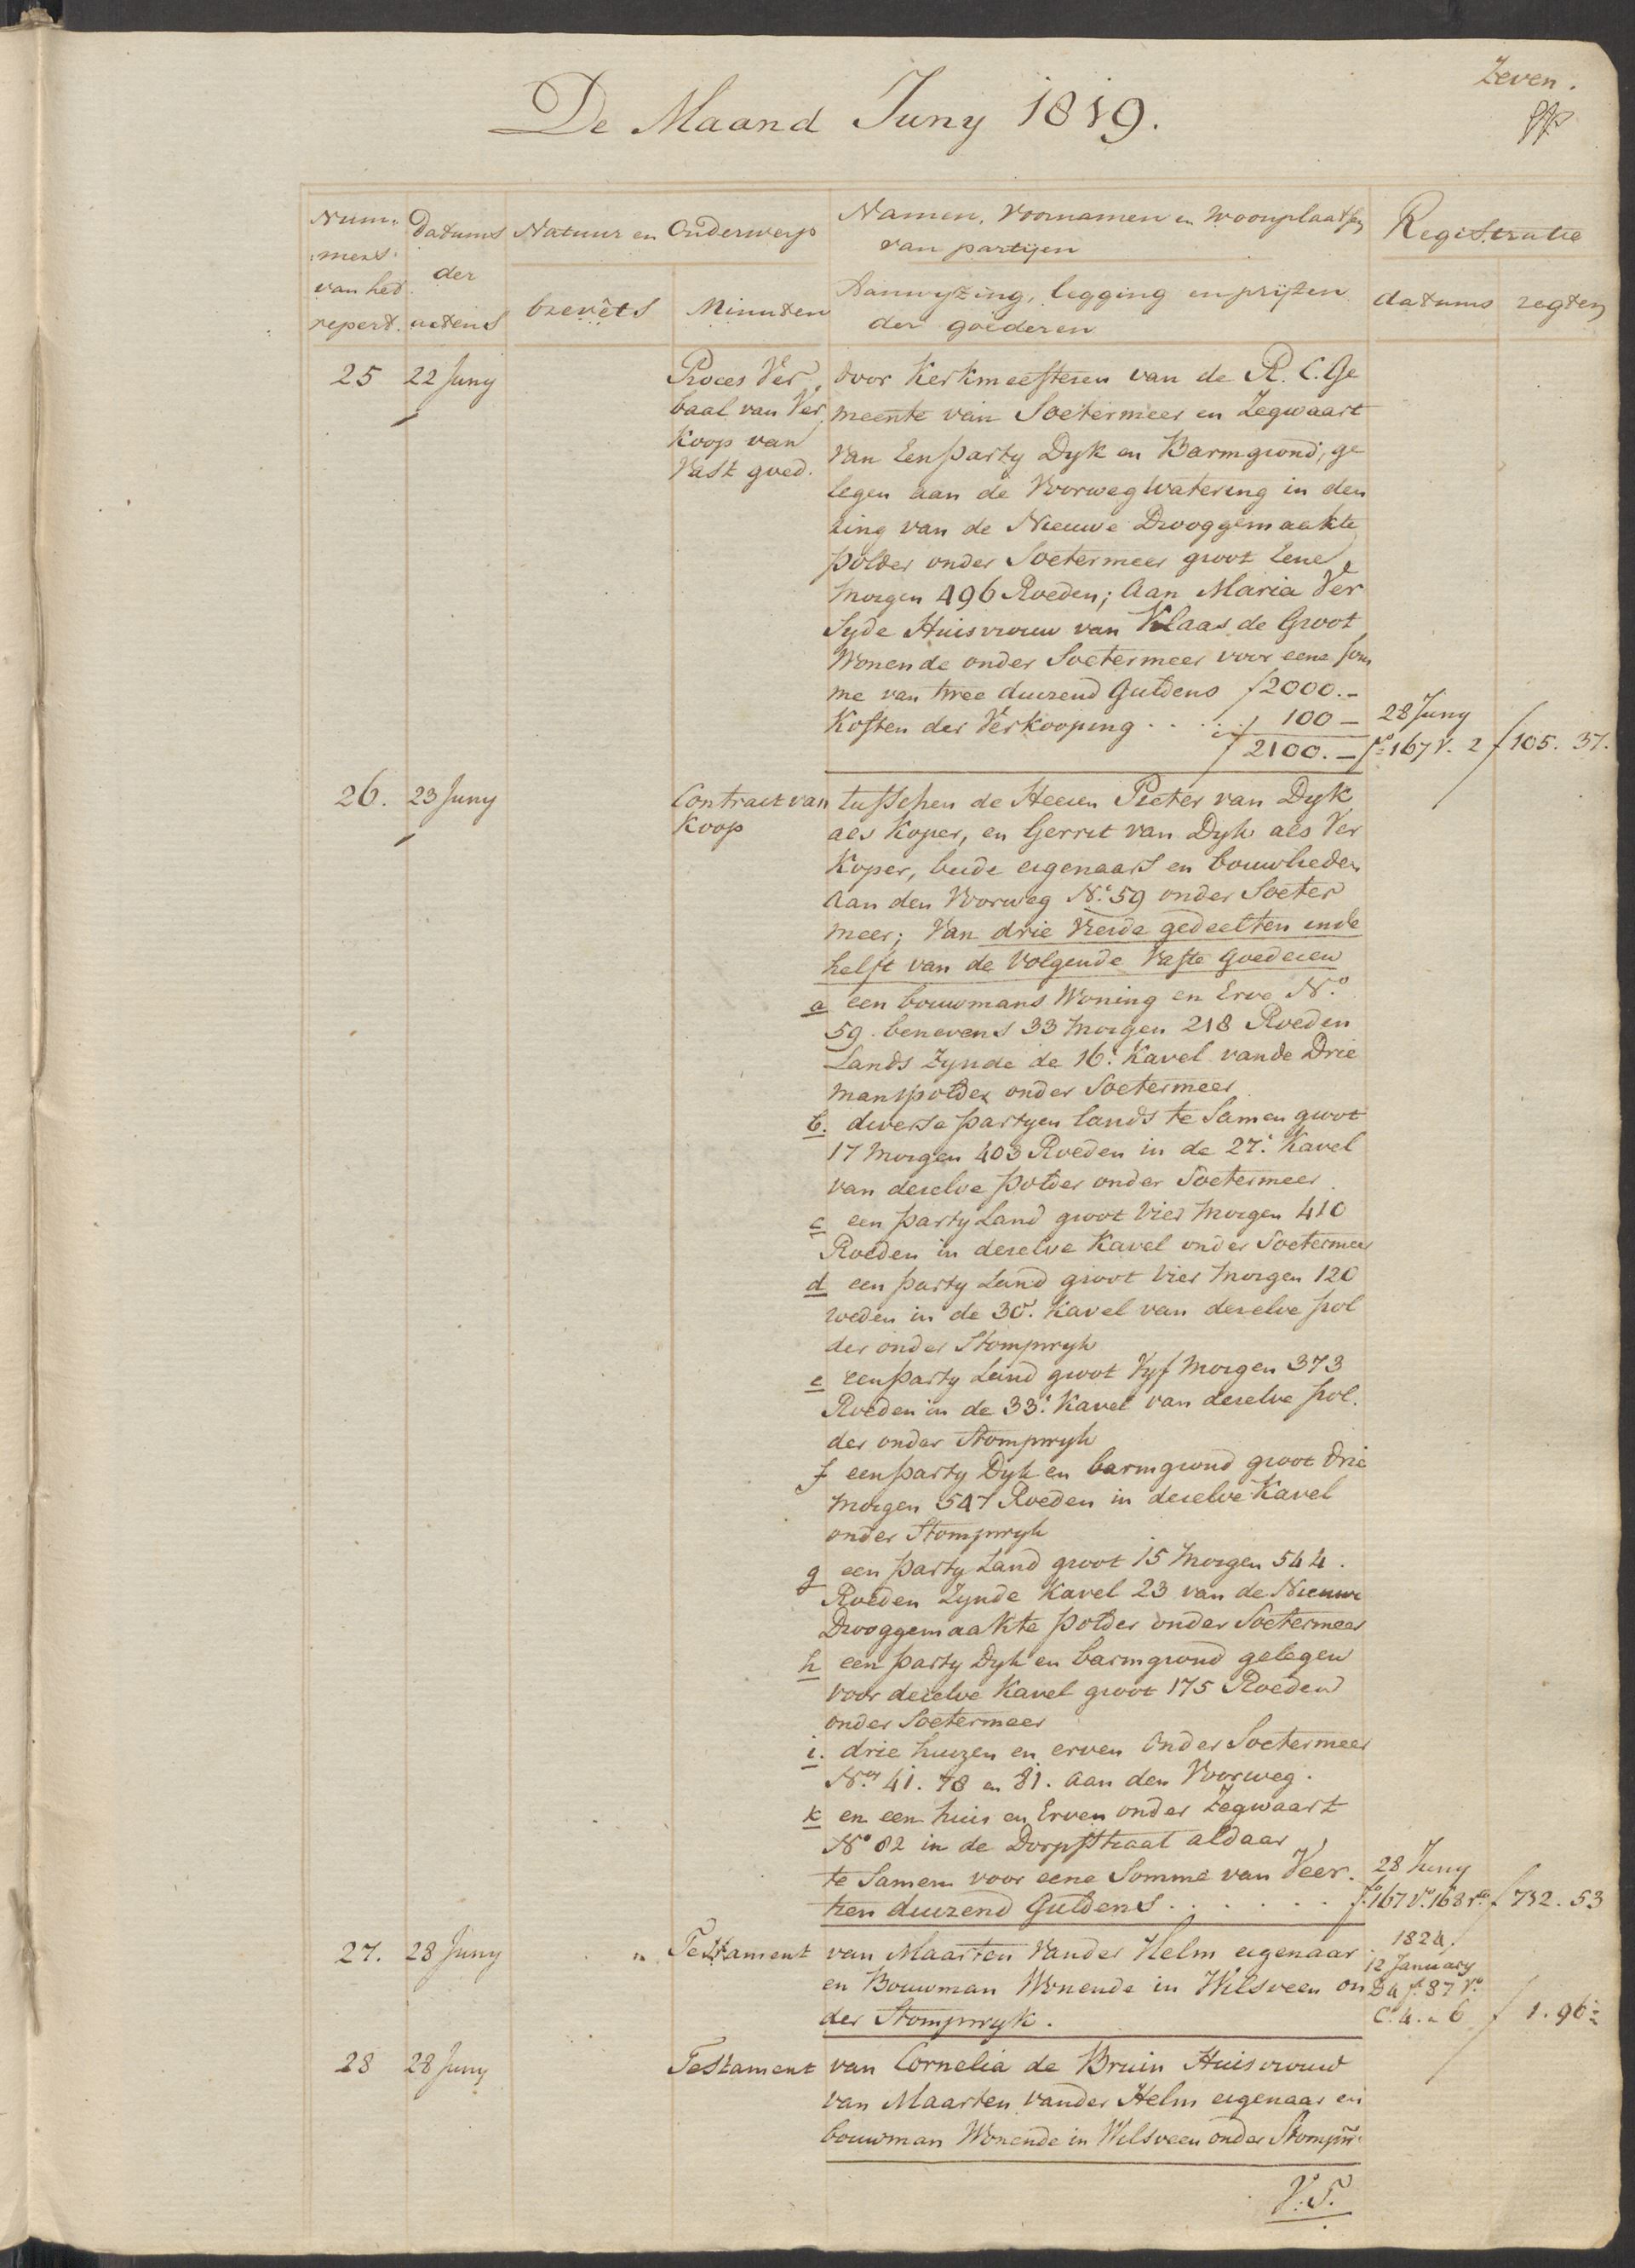 Zeven.
De Maand Juny 1819.
Num:
mers
van het
repert.
Datums
der
actens
Natuur en Onderwerp
brevêts
Minuten
Namen, Voornamen en Woonplaatsen
van partijen
Aanwyzing, legging en prijzen
der goederen
Registratie
datums
regten
25
22 Juny
Proces Ver
baal van Ver
Koop van
Vast goed.
door Kerkmeesteren van de R. C. Ge
meente van Soetermeer en Zegwaart
Van Een party Dyk en Barmgrond, ge
legen aan de Voorweg Watering in den
ring van de Nieuwe Drooggemaakte
polder onder Soetermeer groot Eene
morgen 496 Roeden; Aan Maria Ver
Syde Huisvrouw van Klaas de Groot
Wonende onder Soetermeer voor eene som
me van twee duizend Guldens f 2000.-
Kosten der Verkooping . . . . . 100 -
f 2100. -
28 Juny
fo 167 V. 2
f 105. 37.
26.
23 Juny
Contract van
Koop
tusschen de Heeren Pieter van Dyk
als Koper, en Gerrit van Dyk als Ver
Koper, beide eigenaars en bouwlieden
aan den Voorweg No. 59 onder Soeter
meer; Van drie Vierde gedeelten in de
helft van de Volgende Vaste Goederen
a een bouwmans Woning en Erve No.
59. benevens 33 Morgen 218 Roeden
Lands Zynde de 16e Kavel van de Drie
manspolder onder Soetermeer
b. diverse partyen lands te Samen groot
17 Morgen 403 Roeden in de 27e Kavel
van deselve polder onder Soetermeer.
c een party Land groot Vier Morgen 410
Roeden in deselve Kavel onder Soetermeer
d een party Land groot Vier Morgen 120
roeden in de 30e Kavel van deselve pol
der onder Stompwyk
e een party Land groot Vyf Morgen 373
Roeden in de 33e Kavel van deselve pol.
der onder Stompwyk
f een party Dyk en barmgrond groot Drie
Morgen 547 Roeden in deselve Kavel
onder Stompwyk
g een party Land groot 15 Morgen 544.
Roeden Zynde Kavel 23 van de Nieuwe
Drooggemaakte polder onder Soetermeer
h een party Dyk en barmgrond gelegen
voor deselve Kavel groot 175 Roeden
onder Soetermeer
i. drie huizen en erven Onder Soetermeer
Nos. 41. 78 en 81. aan den Voorweg.
k en een huis en Erven onder Zegwaart
No 82 in de Dorpstraat aldaar
te Samen voor eene Somme van Veer.
tien duizend Guldens . . . . . .
28 Juny
fo 167 Vo. 168 ro
f 732. 53
27.
28 Juny
" Testament
van Maarten Vander Helm eigenaar
en Bouwman Wonende in Wilsveen on
der Stompwyk.
1824.
12 January
D 4 fo 87 Vo
C. 4. a 6
f 1. 96
28
28 Juny
Testament
van Cornelia de Bruin Huisvrouw
van Maarten vander Helm eigenaar en
bouwman Wonende in Wilsveen onder Stompw.
V. S.